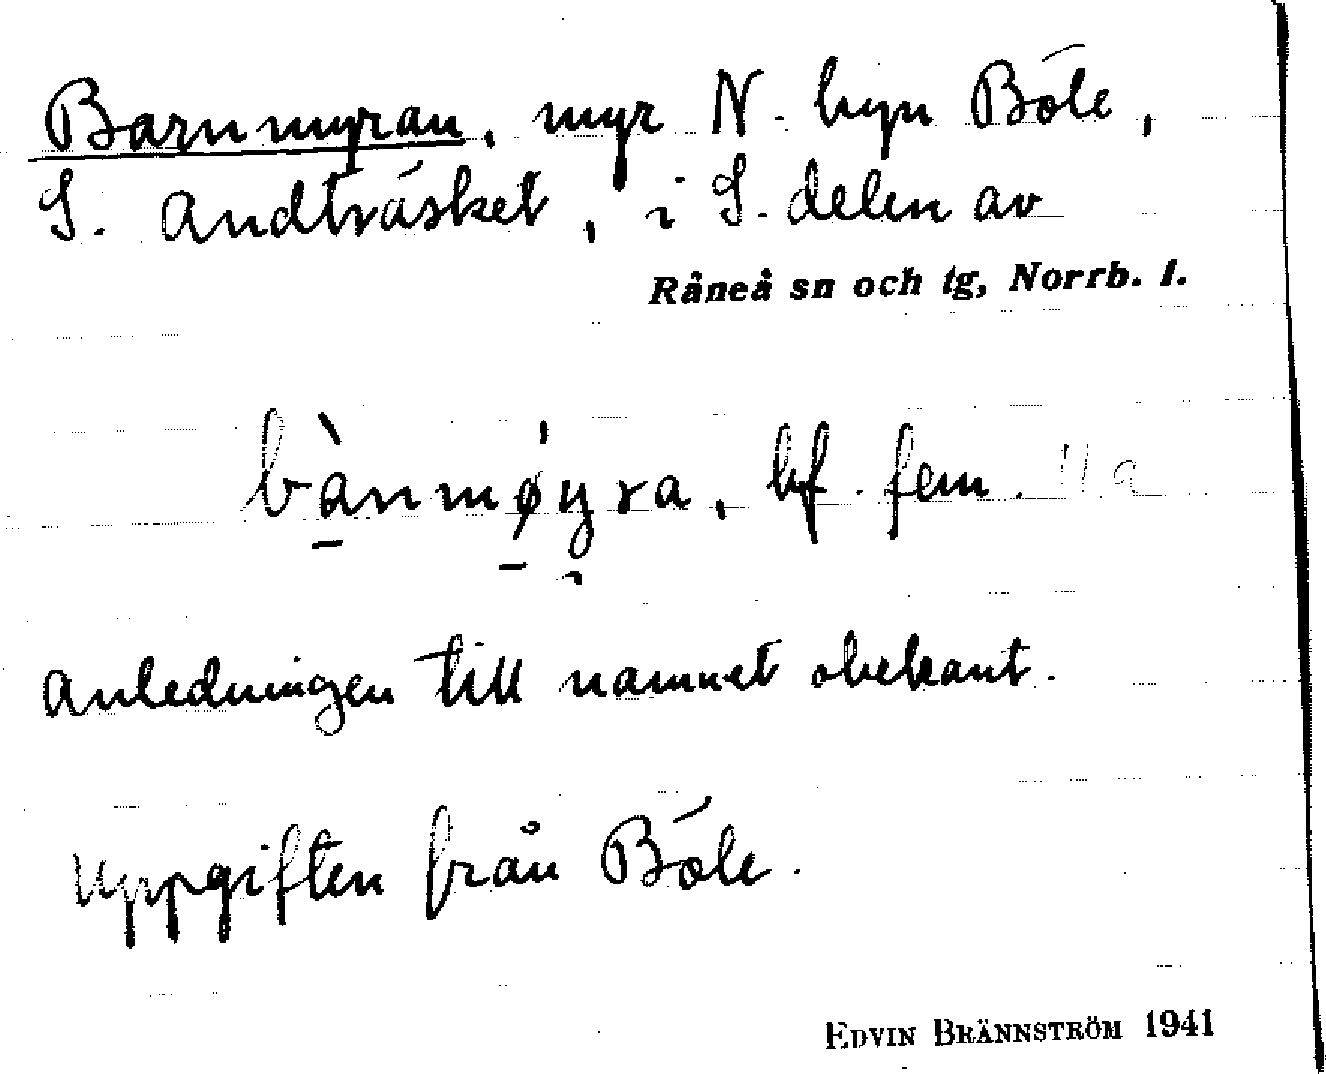 Barnmyran, myr N. byn Böle,
S. Andträsket, i S. delen av
Råneå sn och tg, Norrb. l.
bànmø̀y̯ra, bf. fem. IIa
Anledningen till namnet obekant.
Uppgiften från Böle.
EDVIN BRÄNNSTRÖM 1941